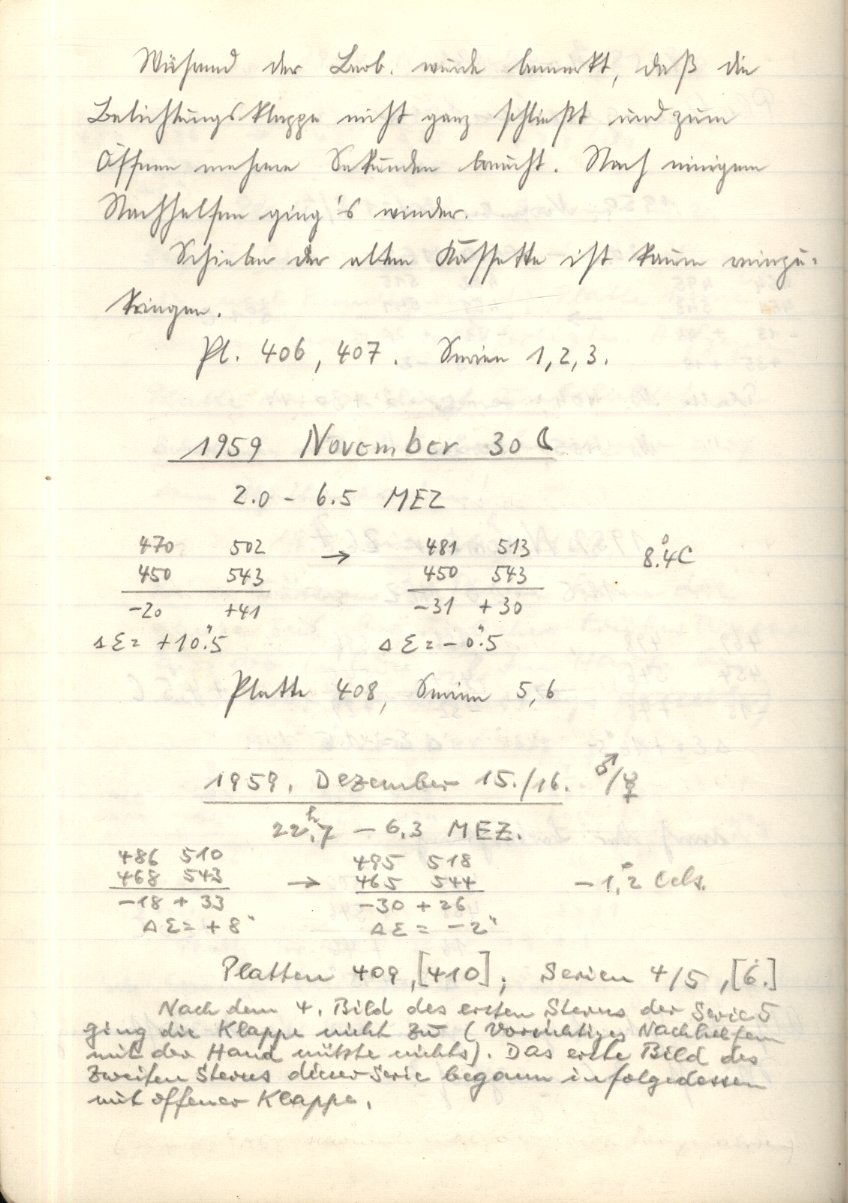 Während der Beob. wurde bemerkt, daß die
Belichtungsklappe nicht ganz schließt und zum
Öffnen mehrere Sekunden braucht. Nach einigem
Nachhelfen ging's wieder.
Schieber der alten Kassette ist kaum reinzu-
kriegen.
Pl. 406, 407. Serien 1, 2, 3.
1959 November 30 ☾
2.0 - 6.5 MEZ
470 502 → 481 513 8.°4C
450 543 450 543
-20 +41 -31 +30
Δε = +10."5 Δε = -0."5
Platte 408, Serien 5, 6
1959, Dezember 15./16. ♂/☿
22.ʰ7 - 6.3 MEZ.
486 510 → 495 518 -1,°2 Cels.
468 543 465 544
-18 + 33 -30 + 26
Δε = +8" Δε = -2"
Platten 409, [410]; Serien 4/5, [6.]
Nach dem 4. Bild des ersten Sterns der Serie 5
ging die Klappe nicht zu (Vorsichtiges Nachhelfen
mit der Hand nützte nichts). Das erste Bild des
zweiten Sterns dieser Serie begann infolgedessen
mit offener Klappe.